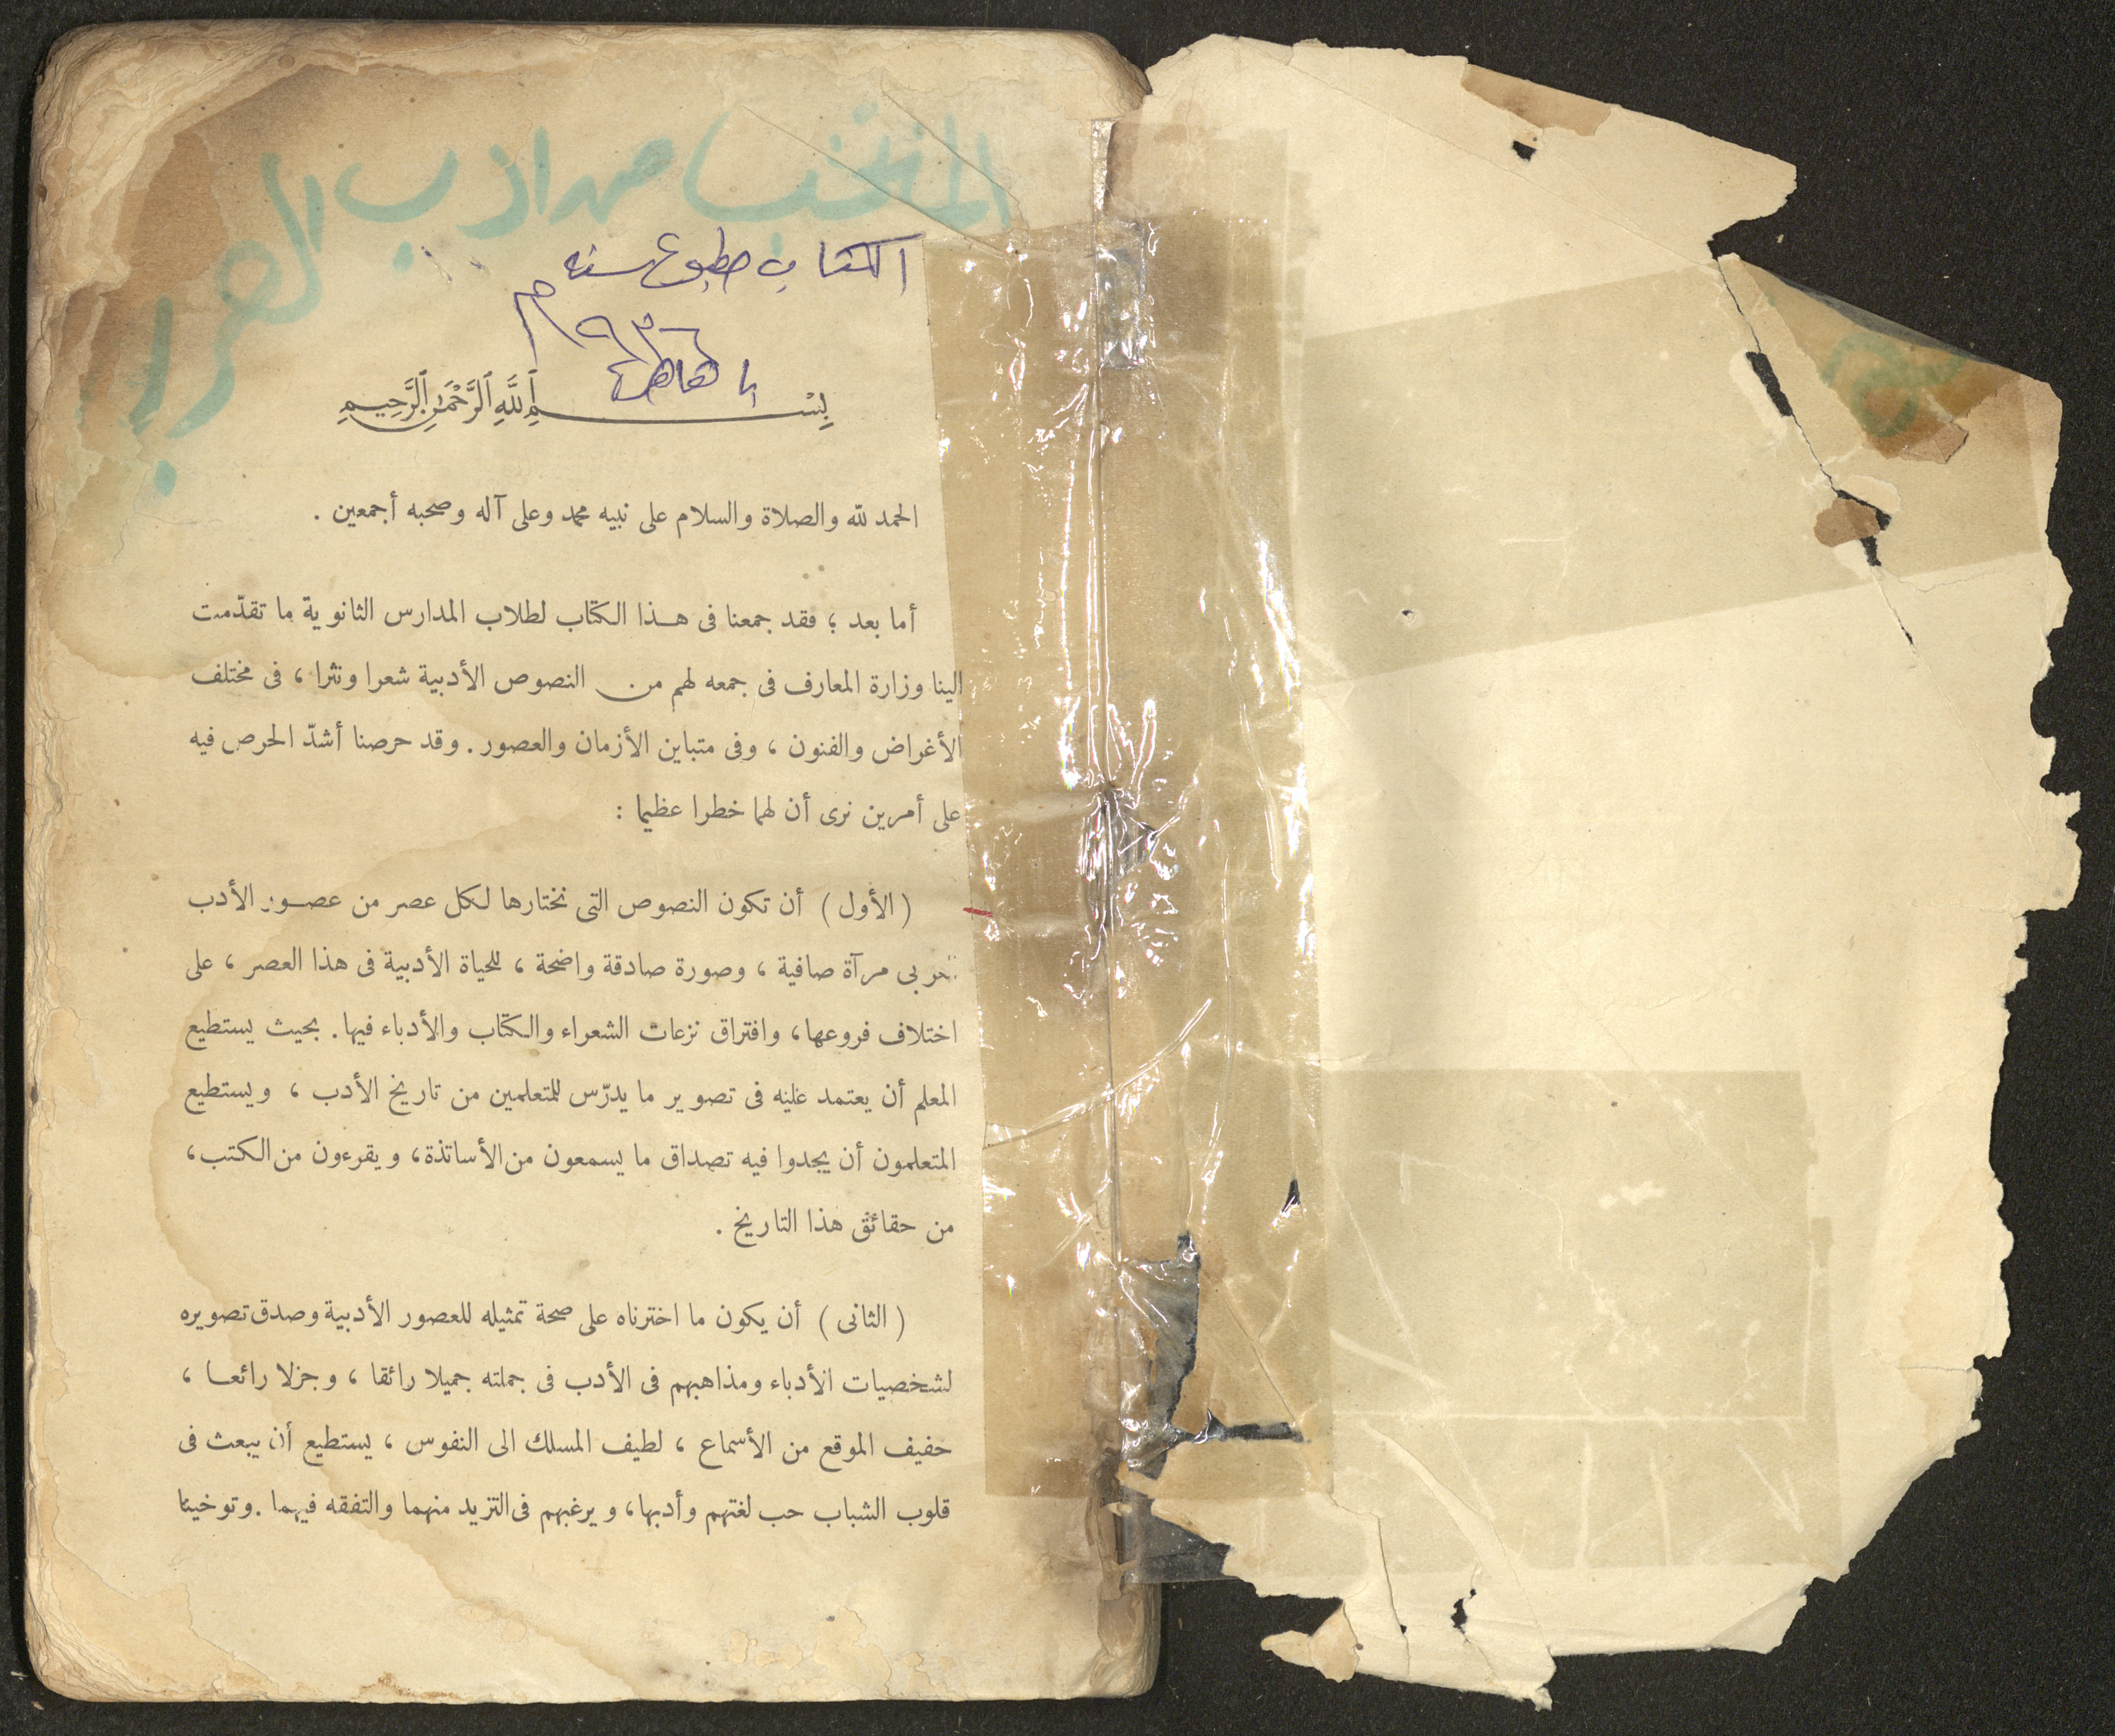 المنتخب من ادب العرب
الكتاب مطبوع سنه
١٩٣٦ م
بالقاهرة
بِسْمِ ٱللَّهِ ٱلرَّحْمَٰنِ ٱلرَّحِيمِ
الحمد لله والصلاة والسلام على نبيه محمد وعلى آله وصحبه أجمعين .
أما بعد ؛ فقد جمعنا فى هذا الكتاب لطلاب المدارس الثانوية ما تقدّمت
الينا وزارة المعارف فى جمعه لهم من النصوص الأدبية شعرا ونثرا ، فى مختلف
الأغراض والفنون ، وفى متباين الأزمان والعصور . وقد حرصنا أشدّ الحرص فيه
على أمرين نرى أن لهما خطرا عظيما :
( الأول ) أن تكون النصوص التى نختارها لكل عصر من عصور الأدب
العربى مرآة صافية ، وصورة صادقة واضحة ، للحياة الأدبية فى هذا العصر ، على
اختلاف فروعها ، وافتراق نزعات الشعراء والكتّاب والأدباء فيها . بحيث يستطيع
المعلم أن يعتمد عليه فى تصوير ما يدرّس للمتعلمين من تاريخ الأدب ، ويستطيع
المتعلمون أن يجدوا فيه تصداق ما يسمعون من الأساتذة ، ويقرءون من الكتب ،
من حقائق هذا التاريخ .
( الثانى ) أن يكون ما اخترناه على صحة تمثيله للعصور الأدبية وصدق تصويره
لشخصيات الأدباء ومذاهبهم فى الأدب فى جملته جميلا رائقا ، وجزلا رائعا ،
خفيف الموقع من الأسماع ، لطيف المسلك الى النفوس ، يستطيع أن يبعث فى
قلوب الشباب حب لغتهم وأدبها ، ويرغبهم فى التزيد منهما والتفقه فيهما . وتوخينا